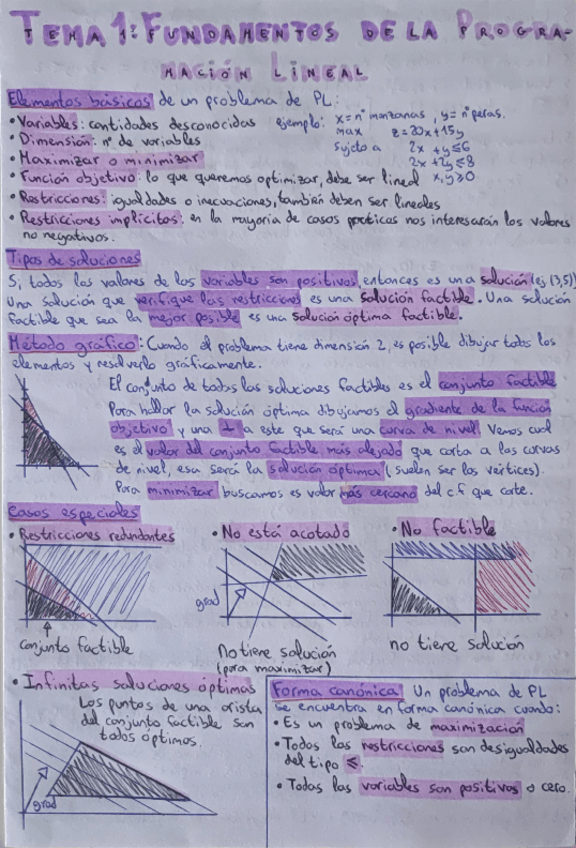 TEMA 1: FUNDAMENTOS DE LA PROGRA-
MACIÓN LINEAL
Elementos básicos de un problema de PL:
• Variables: cantidades desconocidas ejemplo: x = nº manzanas, y = nº peras.
• Dimensión: nº de variables
max z = 20x + 15y
• Maximizar o minimizar
sujeto a 2x + y ≤ 6
2x + 2y ≤ 8
• Función objetivo: lo que queremos optimizar, debe ser lineal
x, y ≥ 0
• Restricciones: igualdades o inecuaciones, también deben ser lineales
• Restricciones implícitas: en la mayoría de casos prácticos nos interesarán los valores
no negativos.
Tipos de soluciones
Si todos los valores de las variables son positivos, entonces es una solución (ej (3,5))
Una solución que verifique las restricciones es una solución factible. Una solución
factible que sea la mejor posible es una solución óptima factible.
Método gráfico: Cuando el problema tiene dimensión 2, es posible dibujar todos los
elementos y resolverlo gráficamente.
El conjunto de todas las soluciones factibles es el conjunto factible
Para hallar la solución óptima dibujamos el gradiente de la función
objetivo y una ⊥ a este que será una curva de nivel. Vemos cual
es el valor del conjunto factible más alejado que corta a las curvas
de nivel, esa será la solución óptima (suelen ser los vértices).
Para minimizar buscamos es valor más cercano del c.f que corte.
Casos especiales
• Restricciones redundantes
• No está acotado
• No factible
grad
conjunto factible
No tiene solución
(para maximizar)
no tiene solución
• Infinitas soluciones óptimas
Los puntos de una arista
del conjunto factible son
todos óptimos.
grad
Forma canónica: Un problema de PL
se encuentra en forma canónica cuando:
• Es un problema de maximización
• Todas las restricciones son desigualdades
del tipo ≤.
• Todas las variables son positivas o cero.